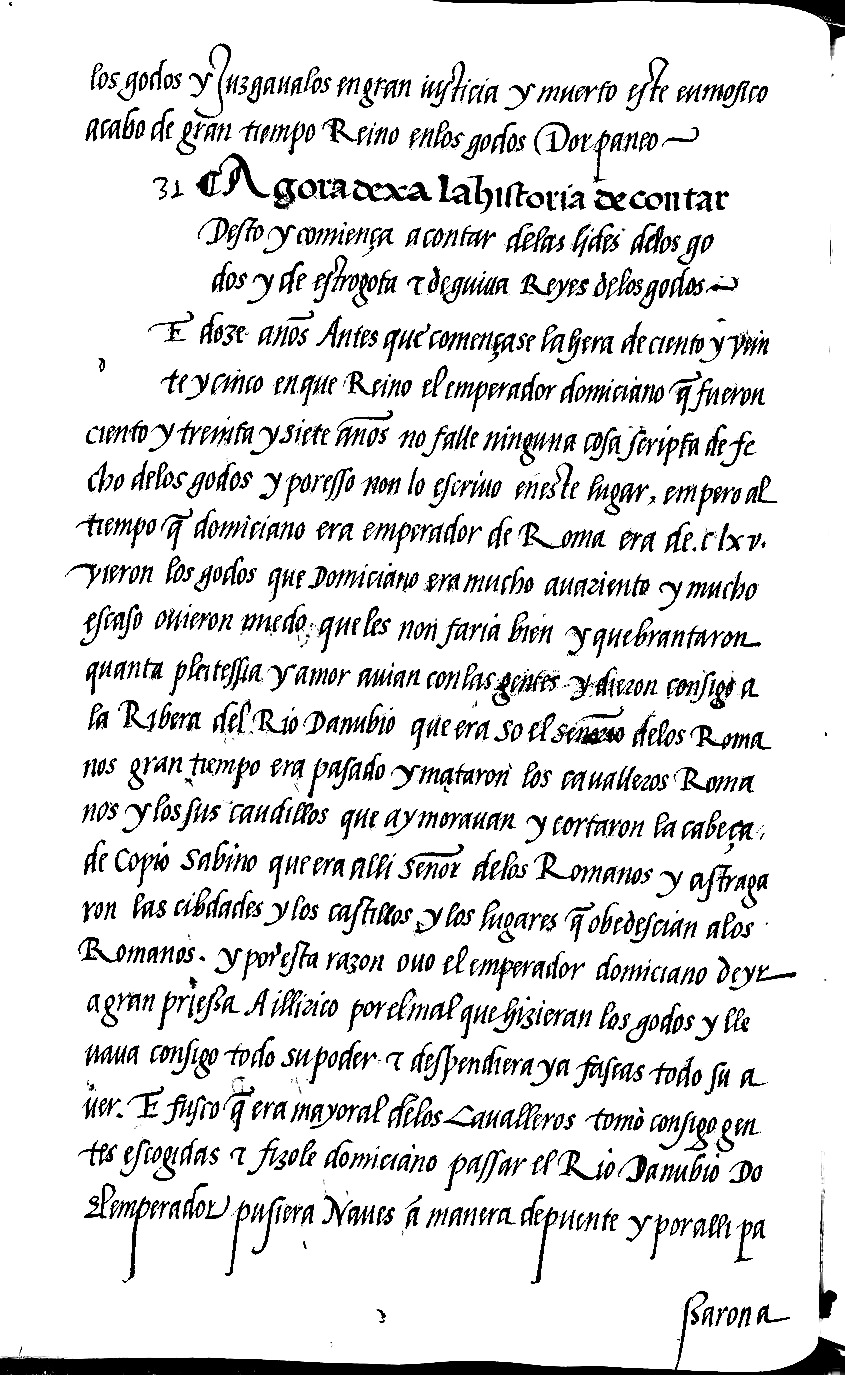 los godos y Juzgaualos en gran iusticia y muerto este eumosico
acabo de gran tiempo Reino en los godos Dorpaneo
31 ¶ Agora dexa la historia de contar
Desto y comiença a contar de las lides delos go
dos y de estrogota τ de guiua Reyes de los godos
E doze años Antes que començase la hera de ciento y vein
te y cinco en que Reino el emperador domiciano q̃ fueron
ciento y treinta y siete años no falle ninguna cosa scripta de fe
cho delos godos y poresso non lo escriuo eneste lugar, empero al
tiempo q̃ domiciano era emperador de Roma era de.clxv.
vieron los godos que Domiciano era mucho auariento y mucho
escaso ouieron miedo, que les non faria bien y quebrantaron
quanta pleitessia y amor auian con las gentes y dieron consigo a
la Ribera del Rio Danubio que era so el señorio delos Roma
nos gran tiempo era pasado y mataron los caualleros Roma
nos y los sus caudillos que ay morauan y cortaron la cabeça,
de Copio Sabino que era alli Señor delos Romanos y astraga
ron las cibdades y los castillos y los lugares q̃ obedescian a los
Romanos. y por esta razon ouo el emperador domiciano de yr
a gran priessa A illirico por el mal que hizieran los godos y lle
uaua consigo todo su poder τ despendiera ya fascas todo su a
uer. E fusco q̃ era mayoral delos Caualleros tomò consigo gen
tes escogidas τ fizole domiciano passar el Rio Danubio Do
El emperador pusiera Naues á manera de puente y por alli pa
ssarona